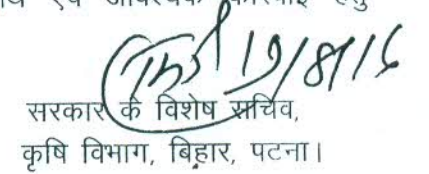 एवं आवश्यक कार्रवाई हेतु
19/8/16
सरकार के विशेष सचिव,
कृषि विभाग, बिहार, पटना।